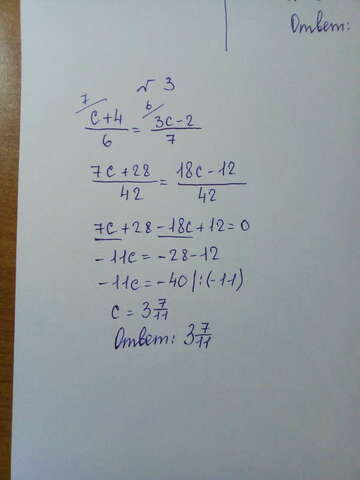 Ответ:
№ 3
7/ 6/
c+4/6 = 3c-2/7
7c+28/42 = 18c-12/42
7c+28-18c+12=0
-11c=-28-12
-11c=-40 |:(-11)
c=3 7/11
Ответ: 3 7/11